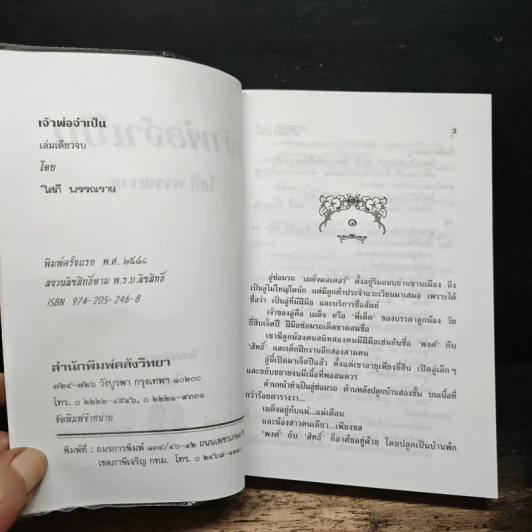 เจ้าพ่อจำเป็น
เล่มเดียวจบ
โดย
โสภี พรรณราย
พิมพ์ครั้งแรก พ.ศ. ๒๕๔๘
สงวนลิขสิทธิ์ตาม พ.ร.บ.ลิขสิทธิ์
ISBN 974-205-246-8
สำนักพิมพ์คลังวิทยา
๗๒๔-๗๒๖ วังบูรพา กรุงเทพฯ ๑๐๒๐๐
โทร. ๐ ๒๒๒๒-๔๕๔๖, ๐ ๒๒๒๑-๙๓๓๑
จัดพิมพ์จำหน่าย
พิมพ์ที่ : อมรการพิมพ์
เขตภาษีเจริญ กทม. โทร.
3
๑
อู่ซ่อมรถ 'เผด็จมอเตอร์' ตั้งอยู่ริมถนนย่านชานเมือง ถึง
เป็นอู่ไม่ใหญ่โตนัก แต่มีลูกค้าประจำแวะเวียนมาเสมอ เพราะได้
ชื่อว่า เป็นอู่ที่มีฝีมือ และบริการซื่อสัตย์
เจ้าของอู่คือ เผด็จ หรือ 'พี่เด็ด' ของบรรดาลูกน้อง วัย
ยี่สิบเจ็ดปี ฝีมือซ่อมรถเด็ดขาดสมชื่อ
เขามีลูกน้องคนสนิทสองคนมีฝีมือเช่นกันชื่อ 'พงศ์' กับ
'สิทธิ์' และเด็กฝึกงานอีกสองสามคน
อู่นี้เปิดมาเจ็ดปีแล้ว ตั้งแต่เขาอายุเพียงยี่สิบ เปิดอู่เล็กๆ
และขยับขยายจนมีเนื้อที่พอสมควร
ด้านหน้าทำเป็นอู่ซ่อมรถ ด้านหลังปลูกบ้านสองชั้น บนเนื้อที่
กว่าร้อยตารางวา...
เผด็จอยู่กับแม่...แม่เตือน
และน้องสาวคนเดียว...เพียงชล
'พงศ์' กับ 'สิทธิ์' ก็อาศัยอยู่ด้วย โดยปลูกเป็นบ้านพัก